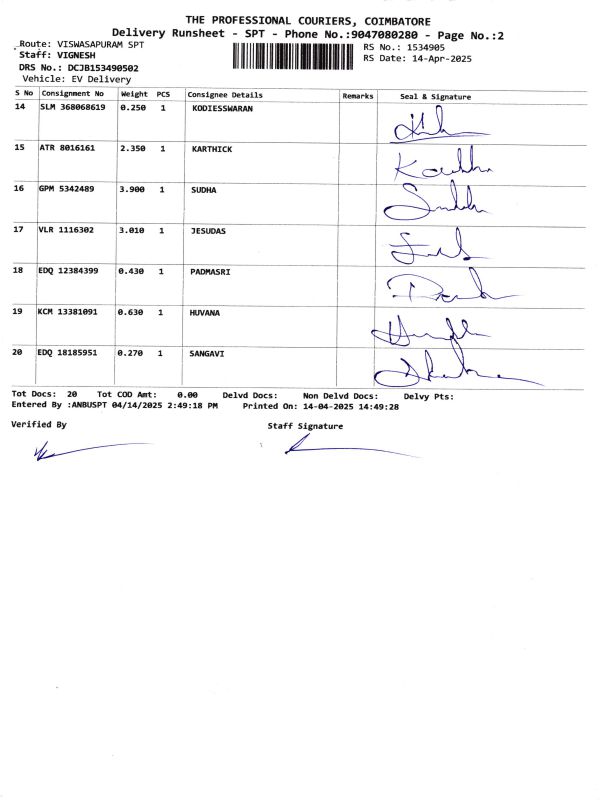 THE PROFESSIONAL COURIERS, COIMBATORE
Delivery Runsheet - SPT - Phone No.:9047080280 - Page No.:2
Route: VISWASAPURAM SPT
Staff: VIGNESH
DRS No.: DCJB153490502
Vehicle: EV Delivery
RS No.: 1534905
RS Date: 14-Apr-2025
S No Consignment No Weight PCS Consignee Details Remarks Seal & Signature
14 SLM 368068619 0.250 1 KODIESSWARAN
15 ATR 8016161 2.350 1 KARTHICK
16 GPM 5342489 3.900 1 SUDHA
17 VLR 1116302 3.010 1 JESUDAS
18 EDQ 12384399 0.430 1 PADMASRI
19 KCM 13381091 0.630 1 HUVANA
20 EDQ 18185951 0.270 1 SANGAVI
Tot Docs: 20 Tot COD Amt: 0.00 Delvd Docs: Non Delvd Docs: Delvy Pts:
Entered By :ANBUSPT 04/14/2025 2:49:18 PM Printed On: 14-04-2025 14:49:28
Verified By Staff Signature